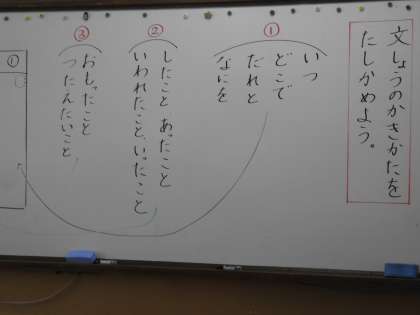 文しょうのかきかたを
たしかめよう。
①
いつ
どこで
だれと
なにを
②
したこと あったこと
いわれたこと、いったこと
③
おもったこと
つたえたいこと
①